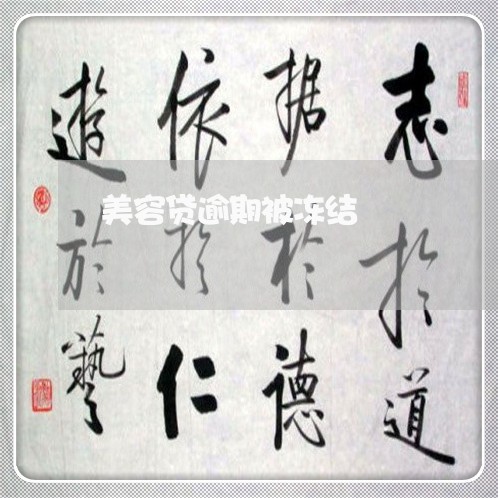 志於道
据於德
依於仁
遊於藝
美容贷逾期被冻结